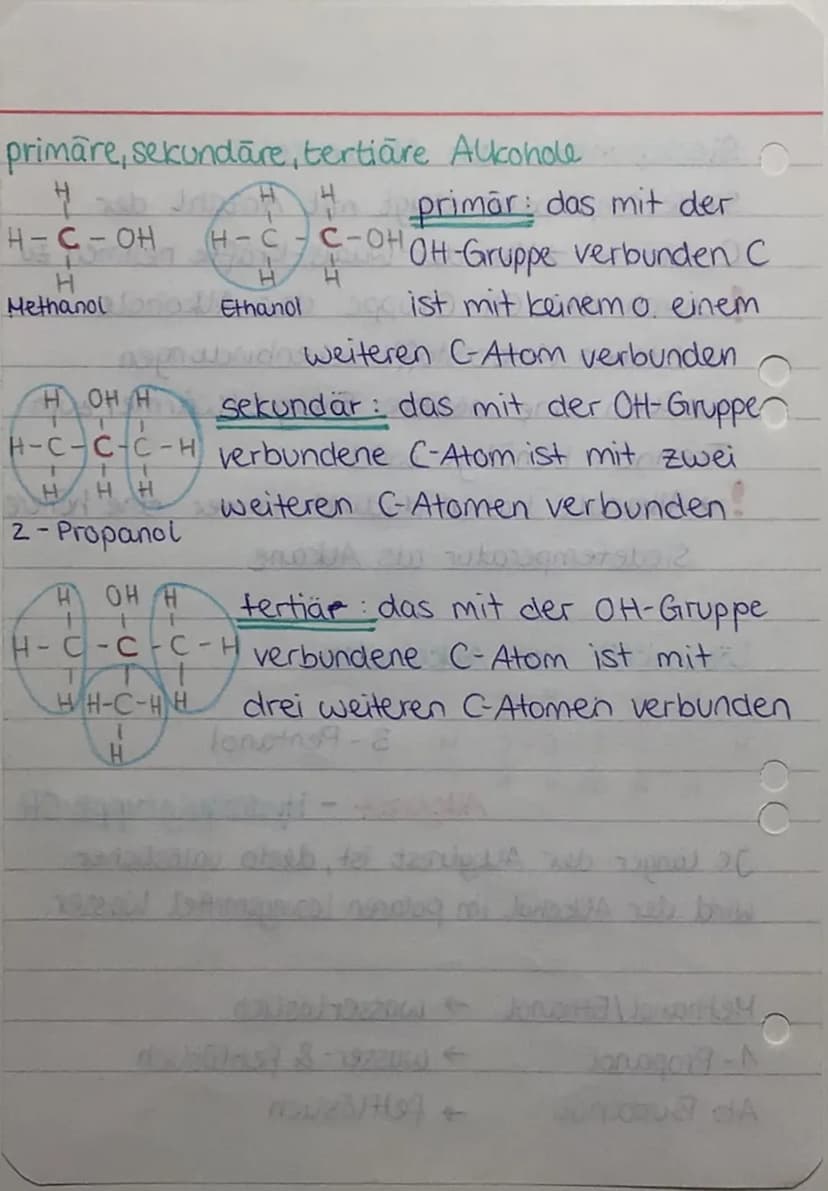 primäre, sekundäre, tertiäre Alkohole
H H H
H-C-OH H-C-C-OH
H H H
Methanol Ethanol
primär: das mit der
OH-Gruppe verbunden C
ist mit keinem o. einem
weiteren C-Atom verbunden
H OH H
H-C-C-C-H
H H H
2-Propanol
sekundär: das mit der OH-Gruppe
verbundene C-Atom ist mit zwei
weiteren C-Atomen verbunden
H OH H
H-C-C-C-H
H H-C-H H
H
tertiär: das mit der OH-Gruppe
verbundene C-Atom ist mit
drei weiteren C-Atomen verbunden